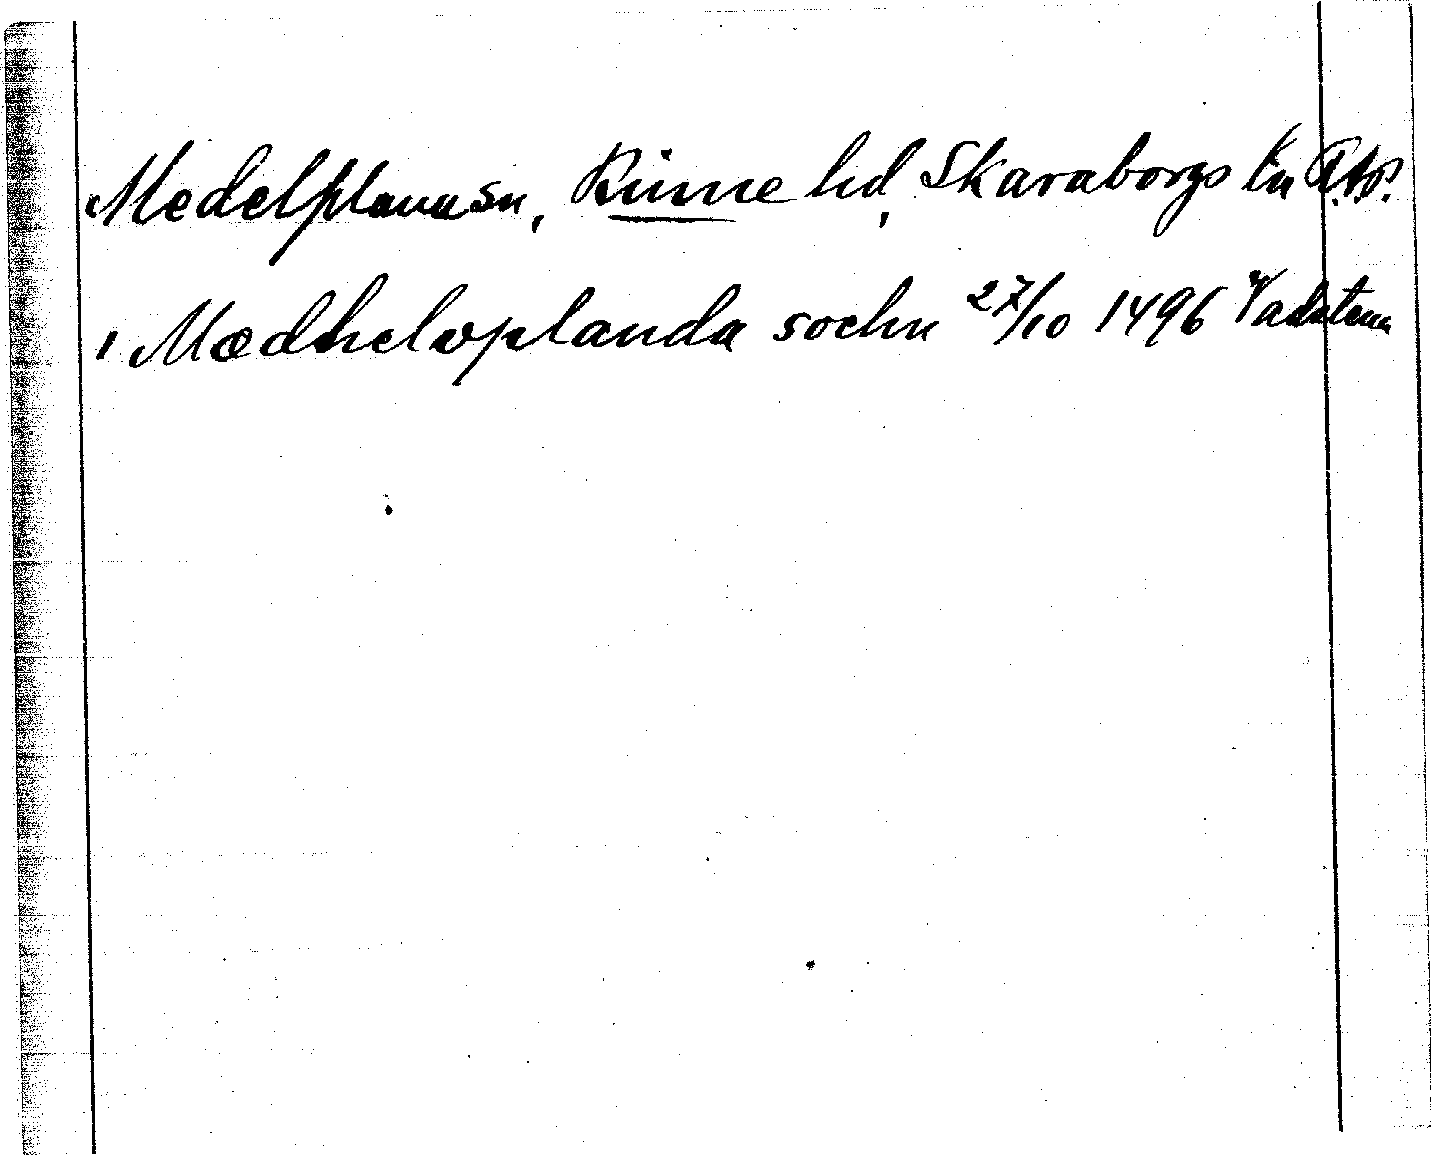 Medelplana sn, Kinne hd, Skaraborgs län R.A.P.
i Mædhelvplanda sochn 27/10 1496 Vadstena